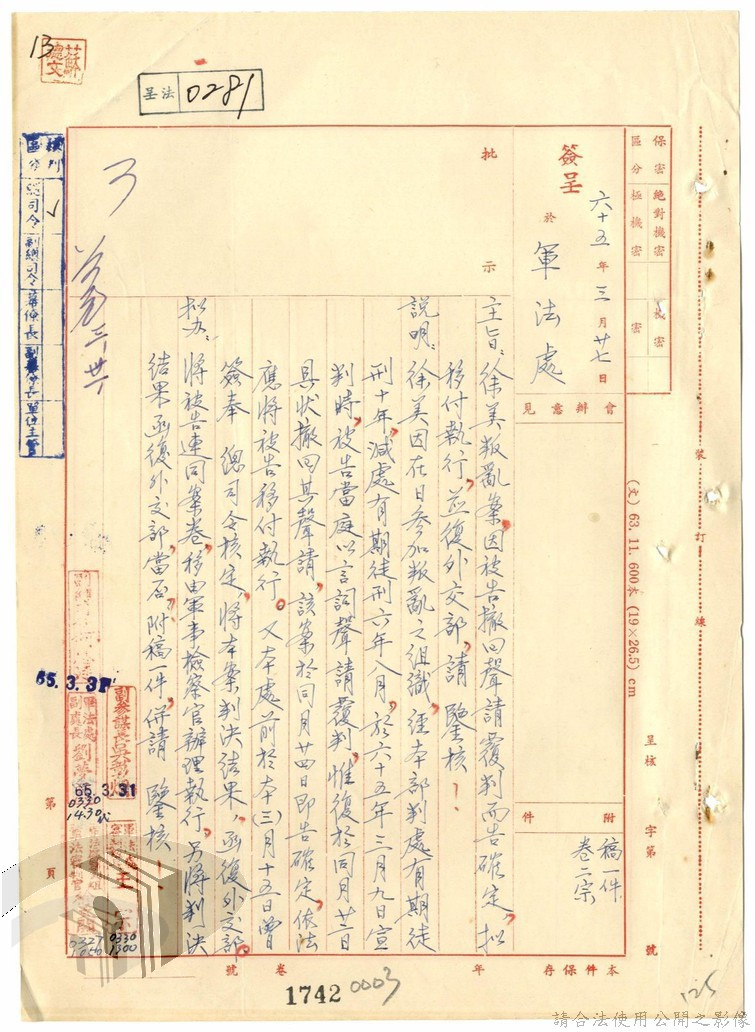 13
蘇德文
呈法 0281
保密區分
絕對機密
極機密
機密
密
簽呈
六十五年三月廿七日
於
軍法處
會辦意見
附件
稿一件
卷二宗
批示
主旨：徐美叛亂案，因被告撤回聲請覆判而告確定，擬
移付執行，並復外交部，請 鑒核！
說明：徐美因在日參加叛亂之組織，經本部判處有期徒
刑十年，減處有期徒刑六年八月，於六十五年三月九日宣
判時，被告當庭以言詞聲請覆判，惟復於同月廿三日
具狀撤回其聲請，該案於同月廿四日即告確定，依法
應將被告移付執行。又本處前於本(三)月十五日曾
簽奉 總司令核定，將本案判決結果，函復外交部。
擬办：將被告連同案卷，移由軍事檢察官辦理執行，另將判決
結果函復外交部，當否，附稿一件，併請 鑒核！
核判區分
總司令
副總司令
參謀長
副參謀長
單位主管
三、卅一
65.3.31
65.3.31
0330
14.30
0330
1300
0327
裝訂線
(文) 63. 11. 600本 (19×26.5) cm
呈核 字第 號
第 頁
本件保存 年 卷 號
1742 0003
125
請合法使用公開之影像